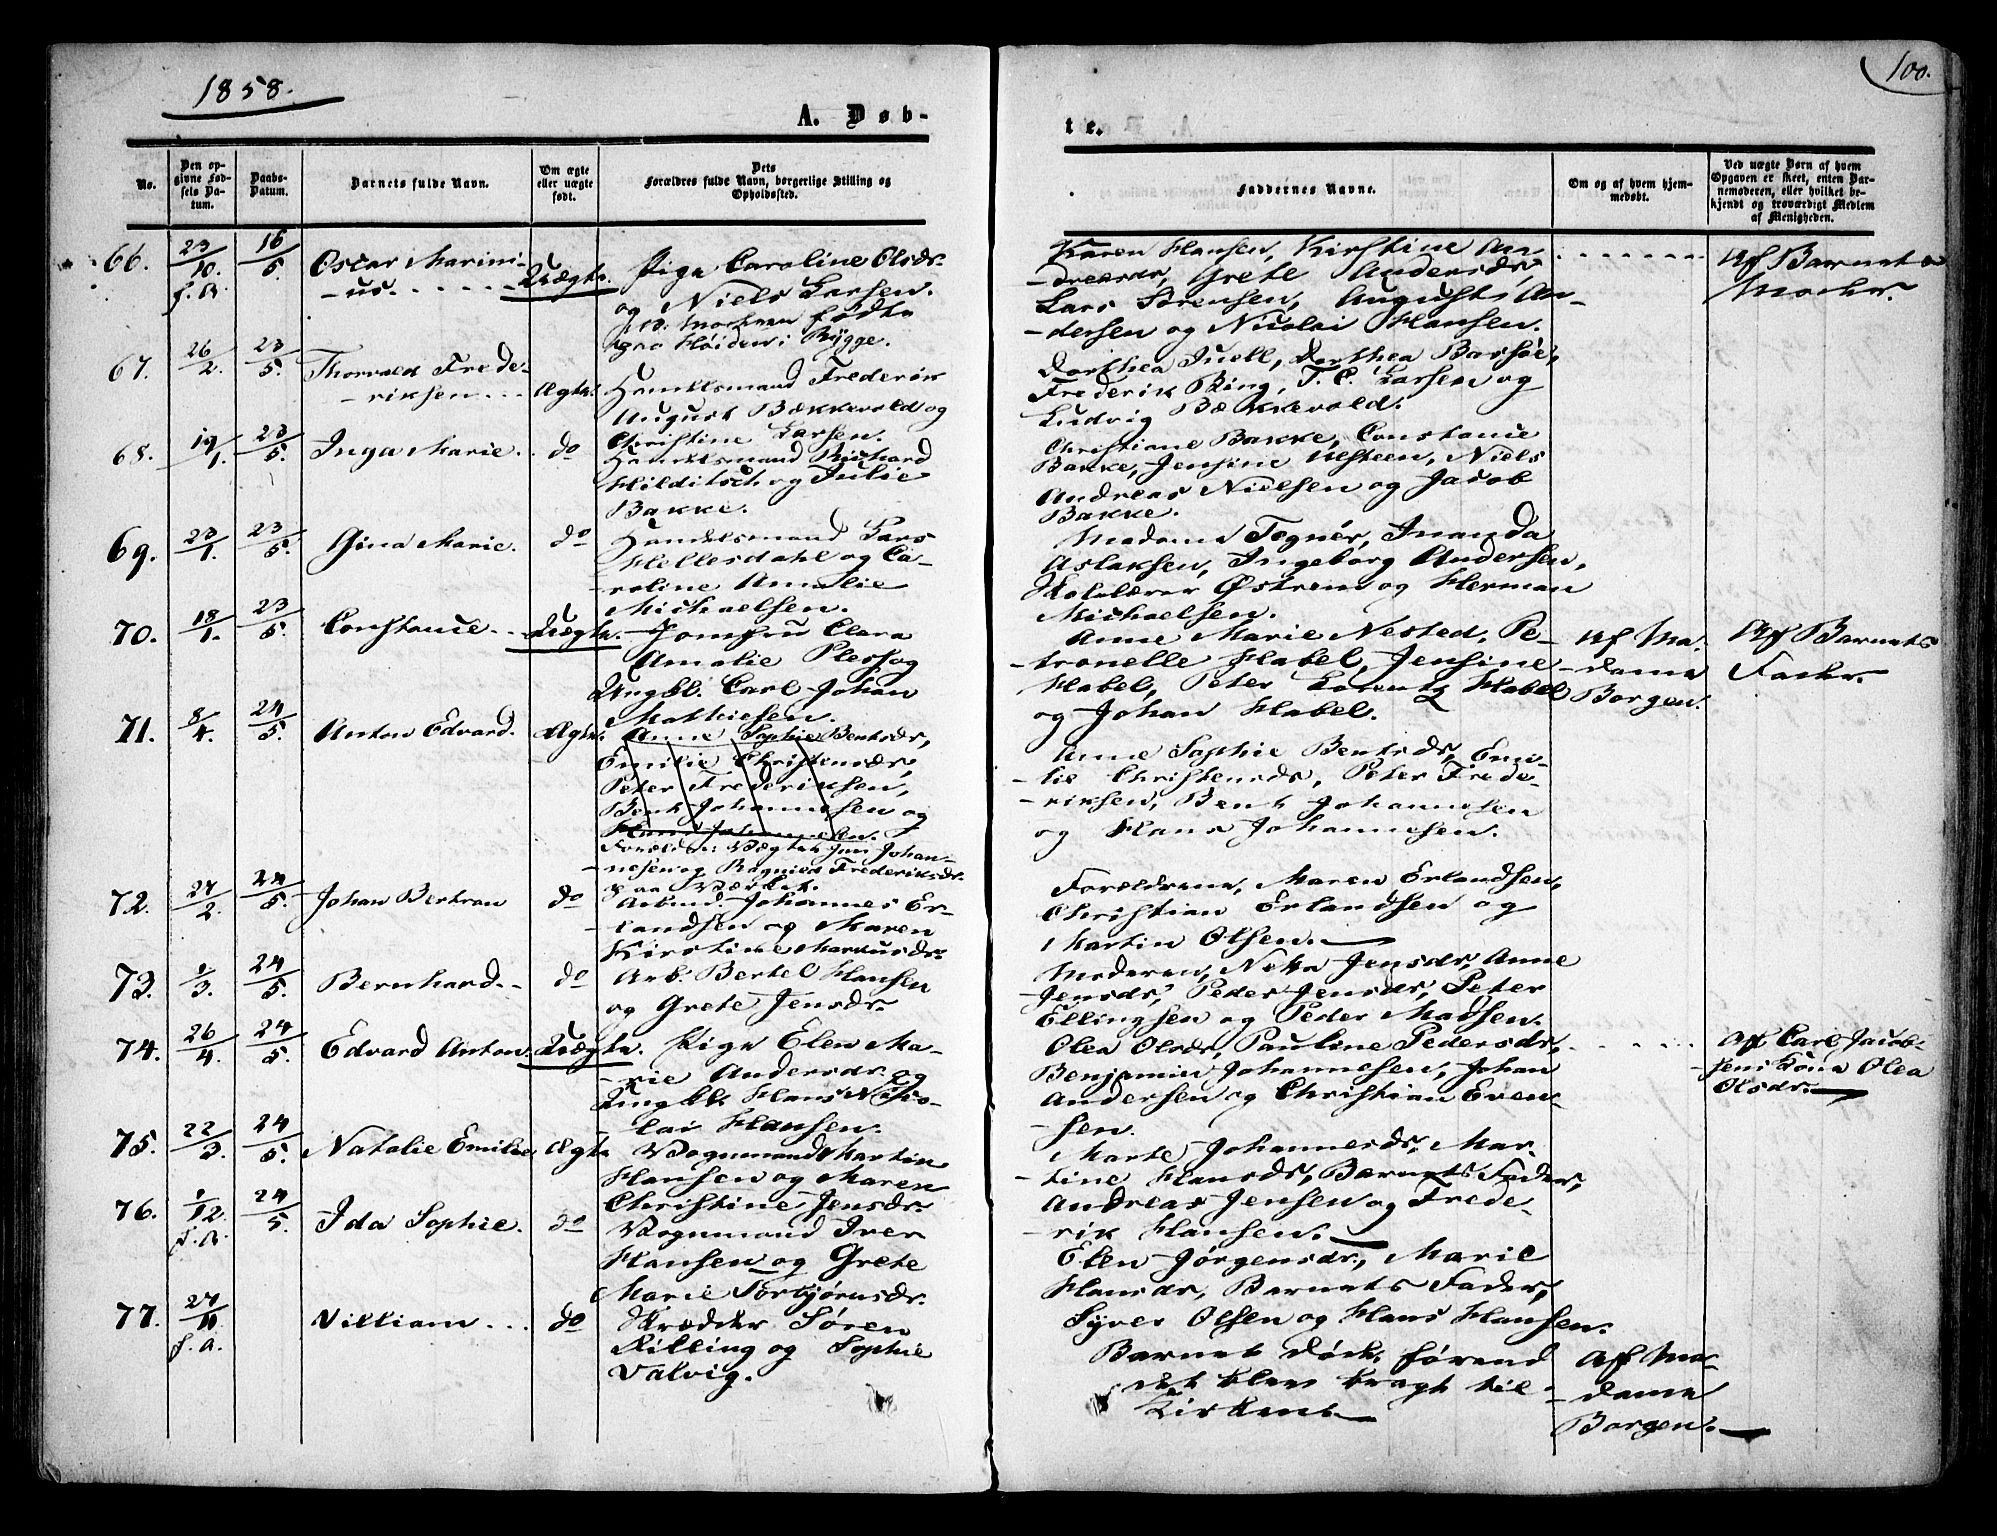 1858.
100.
A. Døb-
te.
No.
Den op-
givne Fød-
sels Da-
tum.
Daabs-
Datum.
Barnets fulde Navn.
Om ægte
eller uægte
født.
Dets
Forældres fulde Navn, borgerlige Stilling og
Opholdssted.
Faddernes Navne.
Om og af hvem hjem-
medøbt.
Ved uægte Børn af hvem
Opgaven er skeet, enten Bar-
nemoderen, eller hvilket be-
kjendt og troværdigt Medlem
af Menigheden.
66. 23/10. f.A. 16/5 Oscar Marini-
-us. Uægte. Pige Caroline Olsdr.
og Niels Larsen.
Moderen fødte
paa Høiden i Rygge.
Karen Hansen, Kirstine An-
-dreasen, Grete Andersdr,
Lars Sørensen, August An-
-dersen og Nicolai Hansen.
Af Barnets
Moder.
67. 26/2. 23/5. Thorvald Frede-
-riksen. Ægte. Handelsmand Frederik
August Bækkevold og
Christine Larsen.
Dorthea Juell, Dorthea Barsøe,
Frederik Ring, T. C. Larsen og
Ludvig Bækkevold.
68. 19/1. 23/5. Inga Marie. do Handelsmand Richard
Hilditsch og Julie
Bakke.
Christiane Bakke, Constance
Bakke, Jensine Ulsteen, Niels
Andreas Nielsen og Jacob
Bakke.
69. 23/1. 23/5. Gina Marie. do Handelsmand Lars
Hellesdahl og Ca-
-roline Amalie
Michaelsen.
Madame Tegnér, Inanda
Aslaksen, Ingeborg Andersen,
Skolelærer Østrem og Herman
Michaelsen.
70. 18/1. 23/5. Constance. Uægte. Jomfru Clara
Amalie Pless og
Ungkl. Carl Johan
Mathiesen.
Anne Marie Nested, Pe-
-tronelle Habel, Jensine
Habel, Peter Lorentz Habel
og Johan Habel.
Af Ma-
-dame
Borgen.
Af Barnets
Fader.
71. 8/4. 24/5. Anton Edvard. Ægte. Anne Sophie Bentsdr,
Emilie Christensdr,
Peter Frederiksen,
Bent Johannesen og
Hans Johannesen.
Forældre: Vægter Jens Johan-
-nesen og Ragnild Frederiksdr.
paa Værket.
Anne Sophie Bentsdr, Emi-
-lie Christensdr, Peter Frede-
-riksen, Bent Johannesen
og Hans Johannesen.
72. 27/2. 24/5. Johan Bertran do Arbmd. Johannes Er-
-landsen og Maren
Kirstine Markusdr.
Forældrene, Maren Erlandsen,
Christian Erlandsen og
Martin Olsen.
73. 1/3. 24/5. Bernhard. do Arb. Bertel Hansen
og Grete Jensdr.
Moderen, Neka Jensdr, Anne
Jensdr, Peder Jensdr, Peter
Ellingsen og Peder Madsen.
74. 26/4. 24/5. Edvard Anton. Uægte. Pige Elen Ma-
-rie Andersdr. og
Ungkl. Hans Nico-
-lai Hansen.
Olea Olsdr, Pauline Pedersdr,
Benjamin Johannesen, Johan
Andersen og Christian Even-
-sen.
Af Carl Jacob-
-sens Kone Olea
Olsdr.
75. 22/3. 24/5. Natalie Emilie Ægte Vognmand Martin
Hansen og Maren
Christine Jensdr.
Marte Johannesdr, Mar-
-tine Hansdr, Barnets Fader,
Andreas Jensen og Frede-
-rik Hansen.
76. 1/12. f.A. 24/5. Ida Sophie. do Vognmand Iver
Hansen og Grete
Marie Torbjørnsdr.
Elen Jørgensdr., Marie
Hansdr, Barnets Fader,
Syver Olsen og Hans Hansen.
77. 27/11. f.A. William. do Skrædder Søren
Killing og Sophie
Valvig.
Barnet døde, førend
det blev bragt til
Kirken.
Af Ma-
-dame
Borgen.